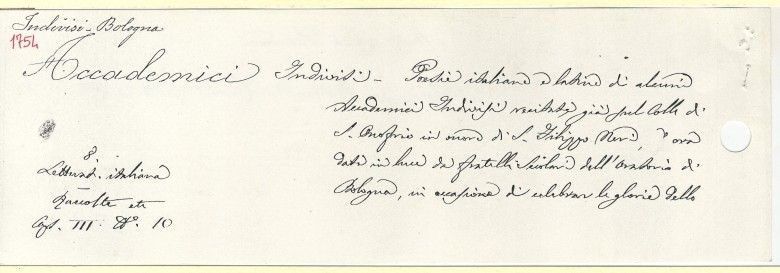 Indivisi - Bologna
1754
Accademici Indivisi - Poesie italiane e latine di alcuni
Accademici Indivisi recitate già sul Colle di
S. Onofrio in onore di S. Filippo Neri, ora
date in luce da fratelli secolari dell'Oratorio di
Bologna, in occasione di celebrar le glorie dello
8.
Letterat. italiana
Raccolte etc
Caps. III. N.º 10